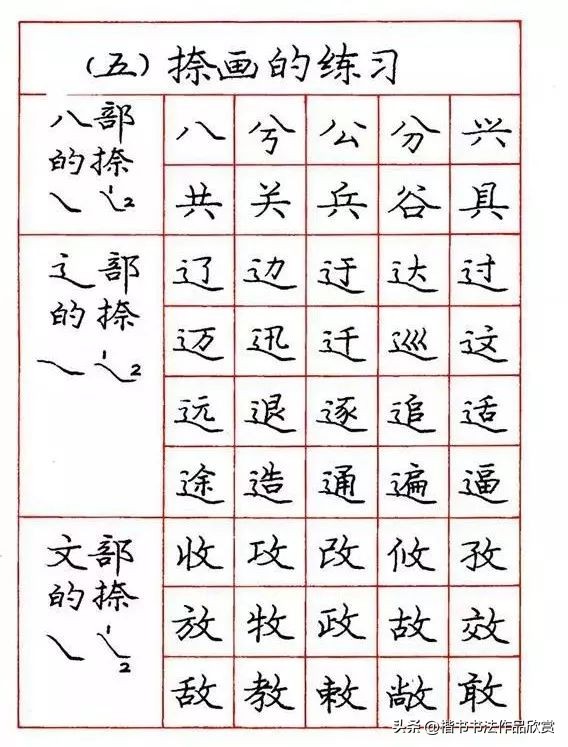 （五）捺画的练习
八部
的捺
1 2
八 兮 公 分 兴
共 关 兵 谷 具
辶部
的捺
1 2
辽 边 迂 达 过
迈 迅 迁 巡 这
远 退 逐 追 适
途 造 通 遍 逼
文部
的捺
1 2
收 攻 改 攸 孜
放 牧 政 故 效
敌 教 敕 敞 敢
头条@楷书书法作品欣赏